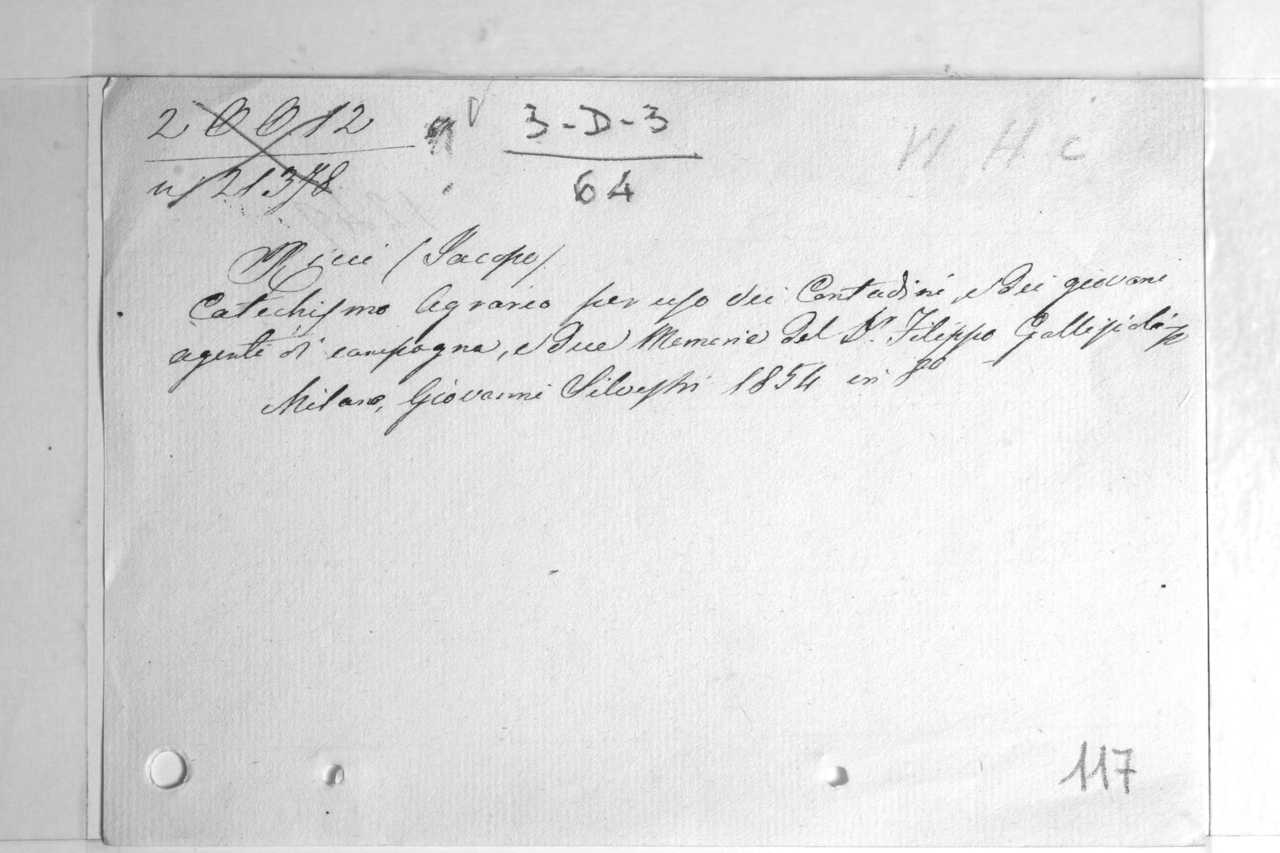 20012 3-D-3 W H C
n 21378 64
Ricci (Jacopo)
Catechismo Agrario per uso dei Contadini, e dei giovani
agenti di campagna, e due Memorie del Dr. Filippo Gallizioli
Milano, Giovanni Silvestri 1854 in 8o
117